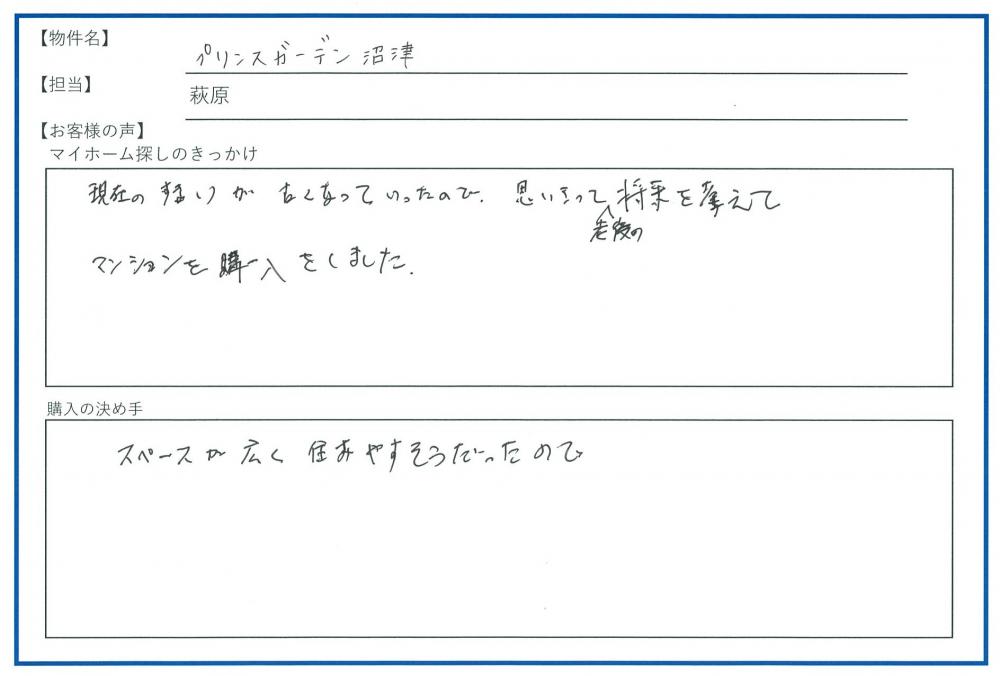 【物件名】
プリンスガーデン沼津
【担当】
萩原
【お客様の声】
マイホーム探しのきっかけ
現在のすまいが古くなっていったので、思いきって老後の将来を考えて
マンションを購入をしました。
購入の決め手
スペースが広く住みやすそうだったので